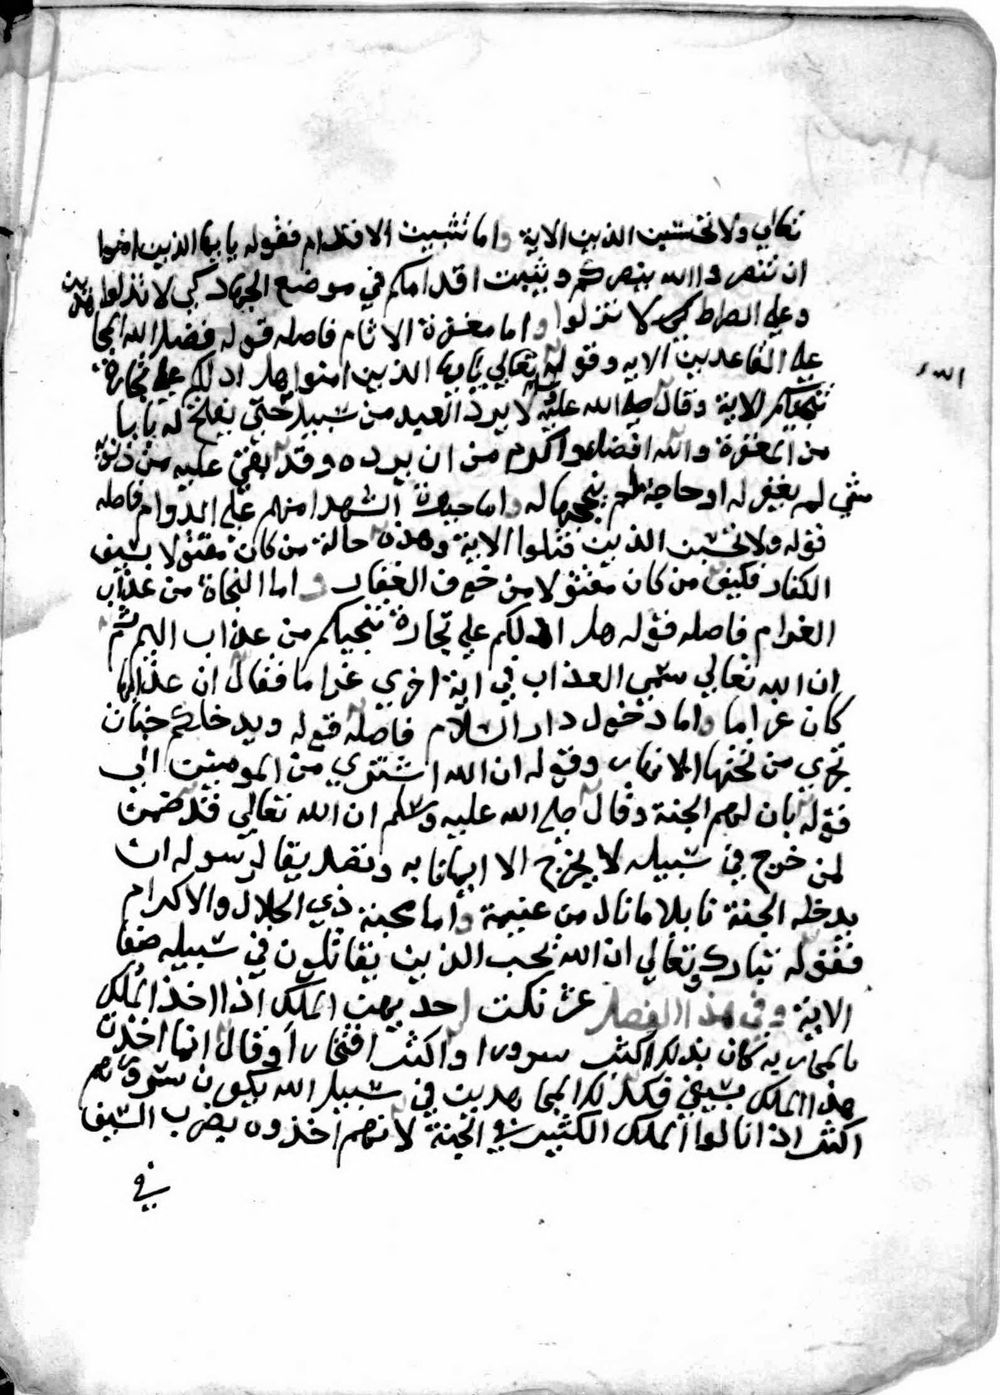 تعالي ولا تحسبن الذين الاية واما تثبيت الاقدام فقوله يا ايها الذين امنوا
ان تنصروا الله ينصركم ويثبت اقدامكم في موضع الجهاد كي لا تزلوا
وعلي الصراط كي لا تنزلوا واما مغفرة الاثام فاصله قوله فضل الله المجاهدين
علي القاعدين الاية وقوله تعالي يا ايها الذين امنوا هل ادلكم علي تجارة
تنجيكم الاية وقال صلي الله عليه لا يرد العبد من سبيله حتي يفتح له بابا
من المغفرة والله افضل واكرم من ان يرده وقد بقي عليه من ذنوبه
شي لم يغفر له او حاجة لم ينجحها له واما حيوة الشهدا منهم علي الدوام فاصله
قوله ولا تحسبن الذين قتلوا الاية وهذه حالة من كان مقتولا بسيف
الكفار فكيف من كان مقتولا من خوف الغفار واما النجاة من عذاب
الغرام فاصله قوله هل ادلكم علي تجارة تنجيكم من عذاب اليم ثم
ان الله تعالي سمي العذاب في اية اخري غراما فقال ان عذابها
كان غراما واما دخول دار السلام فاصله قوله ويدخلكم جنات
تجري من تحتها الانهار وقوله ان الله اشتري من المومنين الي
قوله بان لهم الجنة وقال صلي الله عليه وسلم ان الله تعالي قد ضمن
لمن خرج في سبيله لا يخرج الا ايمانا به وتصديقا لرسوله ان
يدخله الجنة نايلا ما نال من غنيمة واما محبة ذي الجلال والاكرام
فقوله تبارك وتعالي ان الله يحب الذين يقاتلون في سبيله صفا
الاية وفي هذا الفصل عشر نكت احديهن الملك اذا اخذ الملك
بالمحاربه كان بذلك اكثر سرورا واكثر افتخارا وقال انما اخذت
هذا الملك بسيفي فكذلك المجاهدين في سبيل الله يكون سرورهم
اكثر اذا نالوا الملك الكثير في الجنة لانهم اخذوه بضرب السيف
في